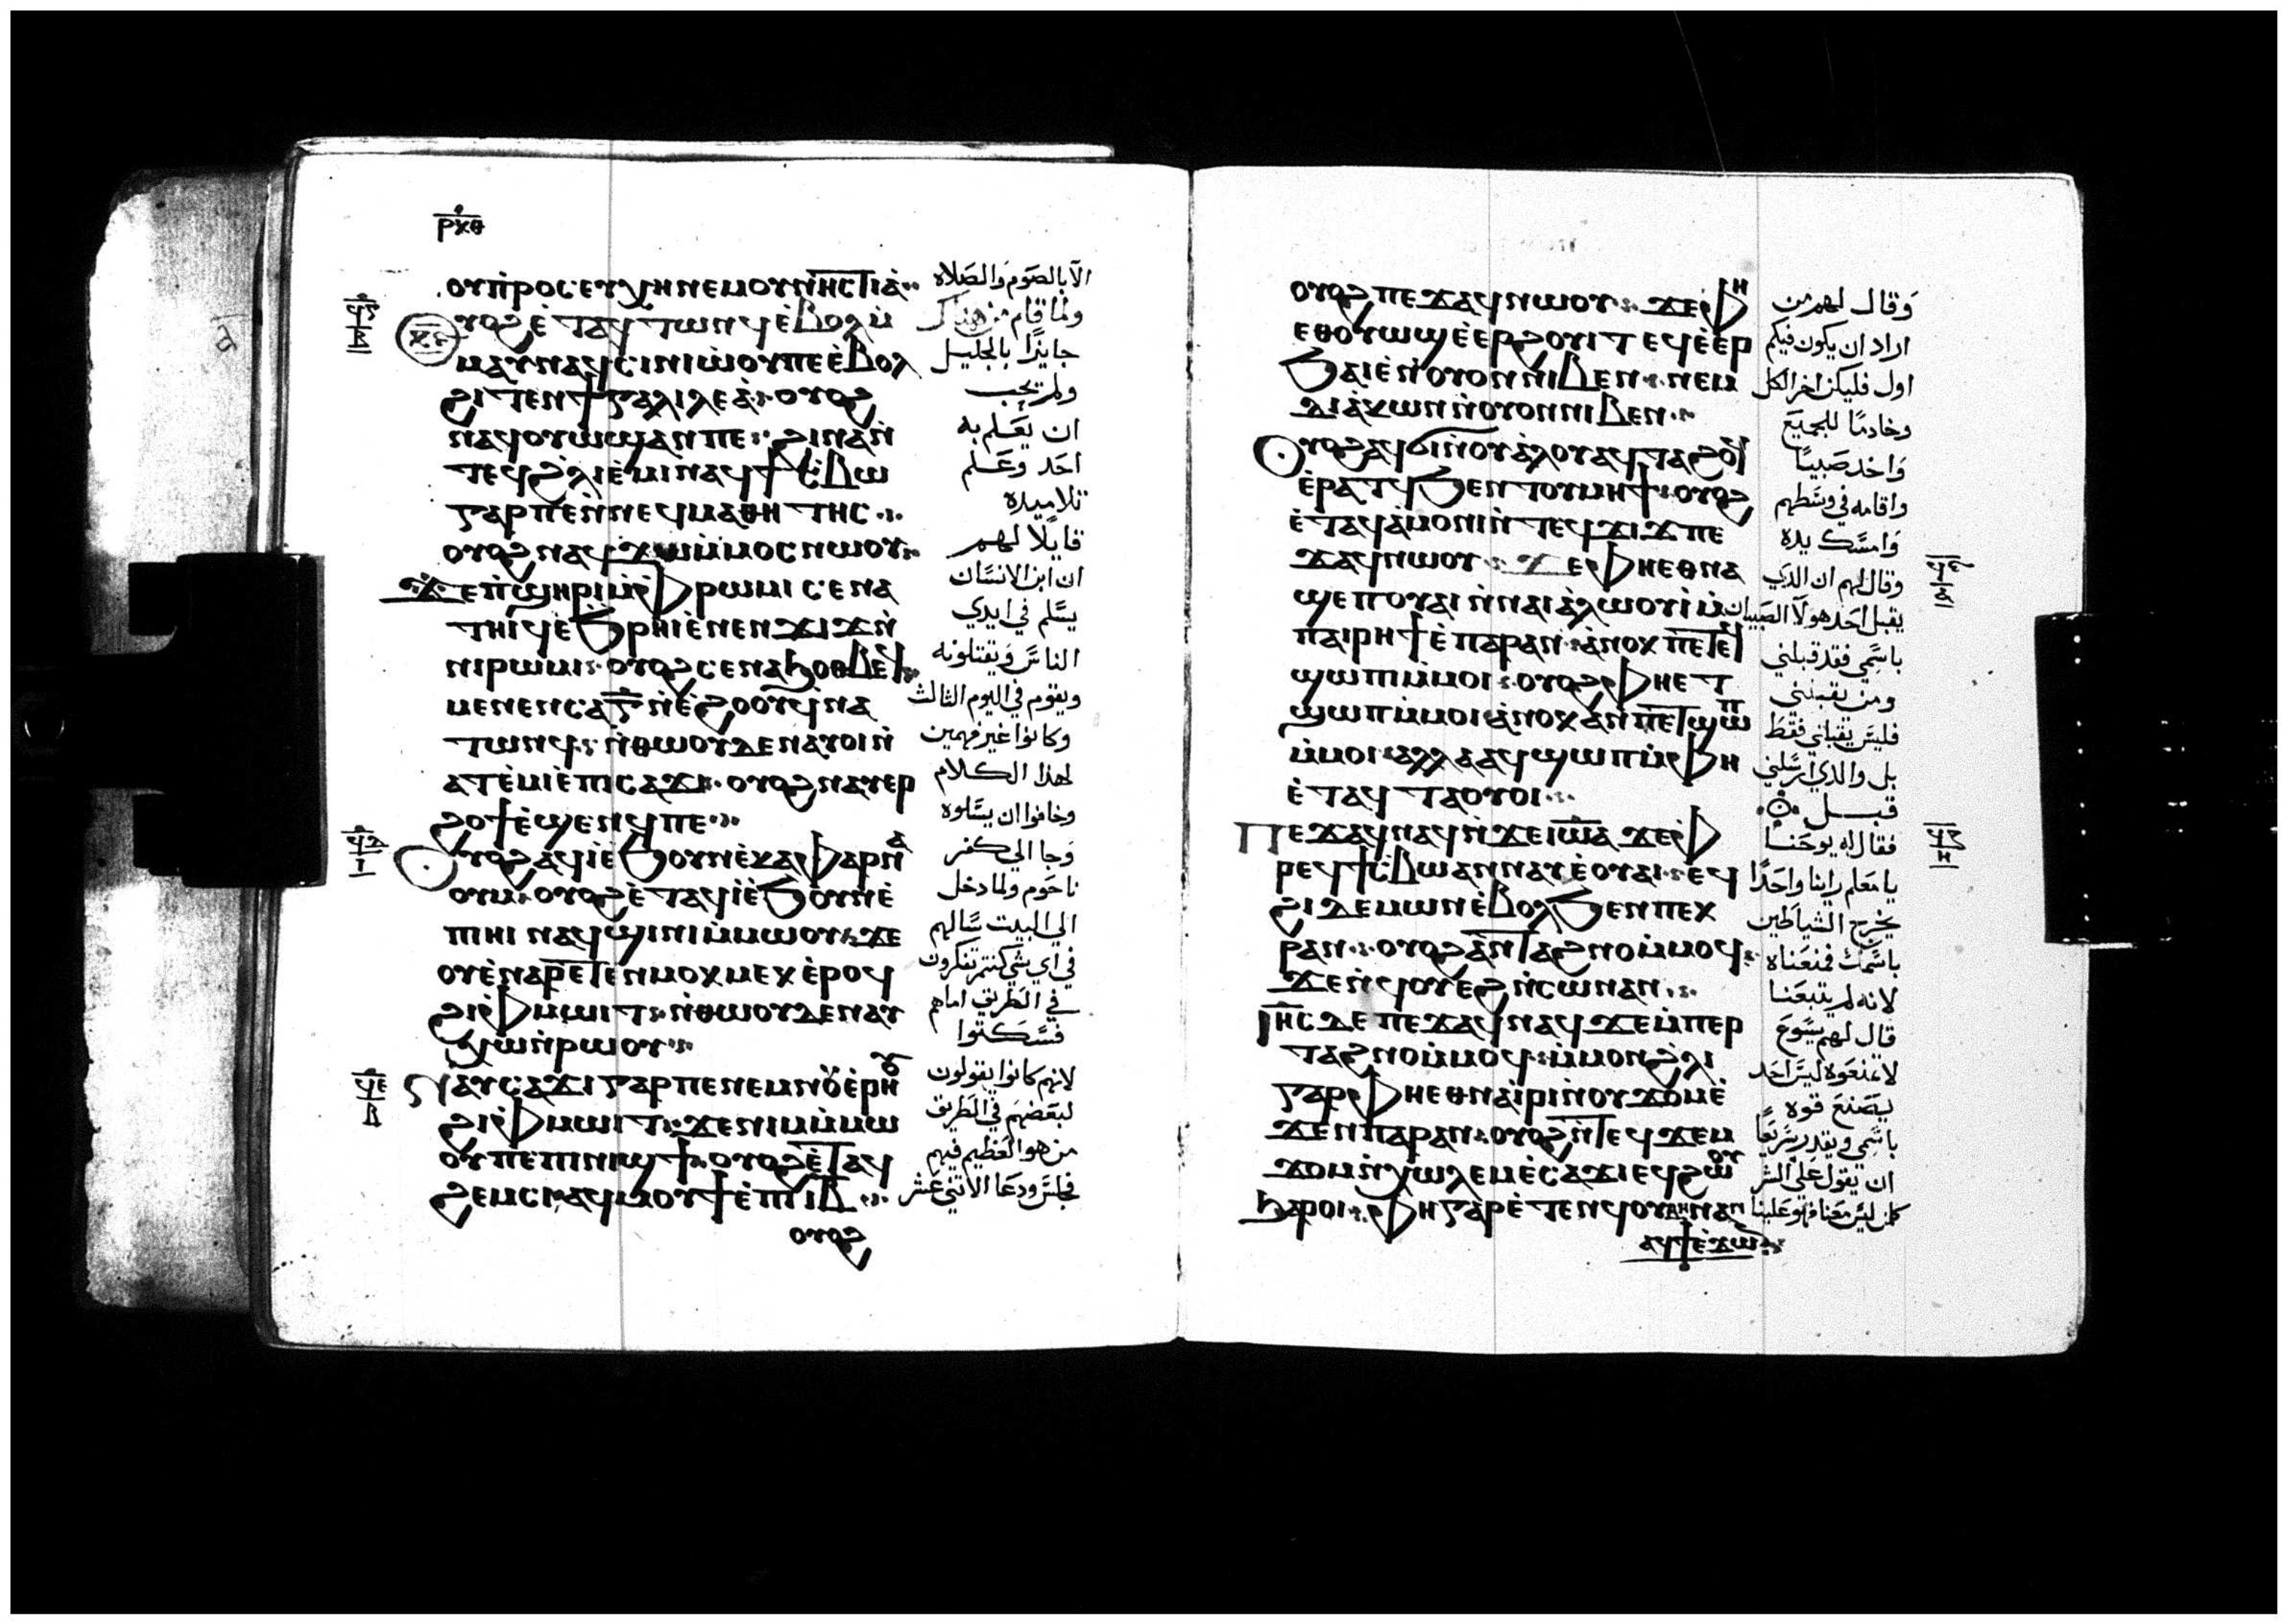 ⲣⲕⲑ
ⲟⲩⲡⲣⲟⲥⲉⲩⲭⲏ ⲛⲉⲙ ⲟⲩⲛⲏⲥⲧⲓⲁ
ⲟⲩⲟϩ ⲉⲧⲁϥⲧⲱⲛϥ ⲉⲃⲟⲗ ⲙ
ⲙⲁⲩ ⲛⲁϥⲥⲓⲛⲓⲱⲟⲩ ⲡⲉ ⲉⲃⲟⲗ
ϩⲓⲧⲉⲛ ϯⲅⲁⲗⲓⲗⲉⲁ ⲟⲩⲟϩ
ⲛⲁϥⲟⲩⲱϣ ⲁⲛ ⲡⲉ ϩⲓⲛⲁ ⲛ
ⲧⲉϥ ϩⲗⲓ ⲉⲙⲓ ⲛⲁϥϯⲥⲃⲱ
ⲅⲁⲣ ⲡⲉ ⲛⲛⲉϥⲙⲁⲑⲏⲧⲏⲥ
ⲟⲩⲟϩ ⲛⲁϥϫⲱ ⲙⲙⲟⲥ ⲛⲱⲟⲩ
ϫⲉ ⲡϣⲏⲣⲓ ⲙⲫⲣⲱⲙⲓ ⲥⲉⲛⲁ
ⲧⲏⲓϥ ⲉϧⲣⲏⲓ ⲉⲛⲉⲛϫⲓϫ ⲛ
ⲛⲓⲣⲱⲙⲓ ⲟⲩⲟϩ ⲥⲉⲛⲁϧⲟⲑⲃⲉϥ
ⲙⲉⲛⲉⲛⲥⲁ ⲅ ⲛⲉϩⲟⲟⲩ ϥⲛⲁ
ⲧⲱⲛϥ ⲛⲑⲱⲟⲩ ⲇⲉ ⲛⲁⲩⲟⲓ ⲛ
ⲁⲧⲉⲙⲓ ⲉⲡⲓⲥⲁϫⲓ ⲟⲩⲟϩ ⲛⲁⲩⲉⲣ
ϩⲟϯ ⲉϣⲉⲛϥ ⲡⲉ
ⲟⲩⲟϩ ⲁϥⲓ ⲉϧⲟⲩⲛ ⲉⲕⲁⲫⲁⲣⲛⲁ
ⲟⲩⲙ ⲟⲩⲟϩ ⲉⲧⲁϥⲓ ⲉϧⲟⲩⲛ ⲉ
ⲡⲓⲏⲓ ⲛⲁϥϣⲓⲛⲓ ⲙⲙⲱⲟⲩ ϫⲉ
ⲟⲩ ⲉⲛⲁⲣⲉⲧⲉⲛⲙⲟⲕⲙⲉⲕ ⲉⲣⲟϥ
ϩⲓ ⲫⲙⲱⲓⲧ ⲛⲑⲱⲟⲩ ⲇⲉ ⲛⲁⲩ
ⲭⲱ ⲛⲣⲱⲟⲩ
ⲛⲁⲩⲥⲁϫⲓ ⲅⲁⲣ ⲡⲉ ⲛⲉⲙ ⲛⲟⲩⲉⲣⲏⲟⲩ
ϩⲓ ⲫⲙⲱⲓⲧ ϫⲉ ⲛⲓⲙ ⲙⲙⲱ
ⲟⲩ ⲡⲉ ⲡⲓⲛⲓϣϯ ⲟⲩⲟϩ ⲉⲧⲁϥ
ϩⲉⲙⲥⲓ ⲁϥⲙⲟⲩϯ ⲉⲡⲓⲓⲃ
ⲟⲩⲟϩ
الا بالصوم والصلاه
ولما قام من هناك
جايزا بالجليل
ولم يحب
ان يعلم به
احد وعلم
تلاميده
قايلا لهم
ان ابن الانسان
يسلم في ايدي
الناس ويقتلونه
ويقوم في اليوم الثالث
وكانوا غير فهمين
لهذا الكلام
وخافوا ان يسلوه
وجا الي كفر
ناحوم ولما دخل
الي البيت سالهم
في اي شي كنتم تفكرون
في الطريق اماهم
فسكتوا
لانهم كانوا يقولون
لبعضهم في الطريق
من هو العظيم فيهم
فجلس ودعا الاثني عشر
ⲟⲩⲟϩ ⲡⲉϫⲁϥ ⲛⲱⲟⲩ ϫⲉ ⲫⲏ
ⲉⲑⲟⲩⲱϣ ⲉⲉⲣϩⲟⲩⲓⲧ ⲉϥⲉⲉⲣ
ϧⲁⲓⲉ ⲛⲟⲩⲟⲛ ⲛⲓⲃⲉⲛ ⲛⲉⲙ
ⲇⲓⲁⲕⲱⲛ ⲛⲟⲩⲟⲛ ⲛⲓⲃⲉⲛ
ⲟⲩⲟϩ ⲁϥϭⲓ ⲛⲟⲩⲁⲗⲟⲩ ⲁϥⲧⲁϩⲟϥ
ⲉⲣⲁⲧϥ ϧⲉⲛ ⲧⲟⲩⲙⲏϯ ⲟⲩⲟϩ
ⲉⲧⲁϥⲁⲙⲟⲛⲓ ⲛⲧⲉϥϫⲓϫ ⲡⲉ
ϫⲁϥ ⲛⲱⲟⲩ ϫⲉ ⲫⲏ ⲉⲑⲛⲁ
ϣⲉⲡ ⲟⲩⲁⲓ ⲛⲛⲁⲓⲁⲗⲱⲟⲩⲓ ⲙ
ⲡⲁⲓⲣⲏϯ ⲉⲡⲁⲣⲁⲛ ⲁⲛⲟⲕ ⲡⲉⲧⲉϥ
ϣⲱⲡ ⲙⲙⲟⲓ ⲟⲩⲟϩ ⲫⲏ ⲉⲧ
ϣⲱⲡ ⲙⲙⲟⲓ ⲁⲛⲟⲕ ⲁⲛ ⲡⲉⲧϥϣⲱⲡ
ⲙⲙⲟⲓ ⲁⲗⲗⲁ ⲁϥϣⲱⲡ ⲙⲫⲏ
ⲉⲧⲁϥⲧⲁⲟⲩⲟⲓ
ⲡⲉϫⲁϥ ⲛⲁϥ ⲛϫⲉ ⲓⲱⲁ ϫⲉ ⲫ
ⲣⲉϥϯⲥⲃⲱ ⲁⲛⲛⲁⲩ ⲉⲟⲩⲁⲓ ⲉϥ
ϩⲓ ⲇⲉⲙⲱⲛ ⲉⲃⲟⲗ ϧⲉⲛ ⲡⲉⲕ
ⲣⲁⲛ ⲟⲩⲟϩ ⲁⲛⲧⲁϩⲛⲟ ⲙⲙⲟϥ
ϫⲉ ⲛϥⲟⲩⲉϩ ⲛⲥⲱⲛ ⲁⲛ
ⲓⲏⲥ ⲇⲉ ⲡⲉϫⲁϥ ⲛⲁϥ ϫⲉ ⲙⲡⲉⲣ
ⲧⲁϩⲛⲟ ⲙⲙⲟϥ ⲙⲙⲟⲛ ϩⲗⲓ
ⲅⲁⲣ ⲫⲏ ⲉⲑⲛⲁⲓⲣⲓ ⲛⲟⲩϫⲟⲙ ⲉ
ϫⲉⲛ ⲡⲁⲣⲁⲛ ⲟⲩⲟϩ ⲛⲧⲉϥϫⲉⲙ
ϫⲟⲙ ⲛⲭⲱⲗⲉⲙ ⲉⲥⲁϫⲓ ⲉϥϩⲱⲟⲩ
ϧⲁⲣⲟⲓ ⲫⲏ ⲅⲁⲣ ⲉⲧⲉⲛϥⲟⲩⲃⲏⲛ ⲁⲛ
ⲁϥϯ ⲉϫⲱⲛ
وقال لهم من
اراد ان يكون فيكم
اول فليكن اخر الكل
وخادما للجميع
واخد صبيا
واقامه في وسطهم
وامسك يده
وقال لهم ان الدي
يقبل احد هولا الصبيان
باسمي فقد قبلني
ومن يقبلني
فليس يقبلني فقط
بل والدي ارسلني
قبل
فقال له يوحنا
يا معلم راينا واحدا
يخرج الشياطين
باسمك فمنعناه
لانه لم يتبعنا
قال لهم يسوع
لا تمنعوه ليس احد
يصنع قوه
باسمي ويقدر سريعا
ان يقول علي الشر
كلمن ليس معنا فهو علينا